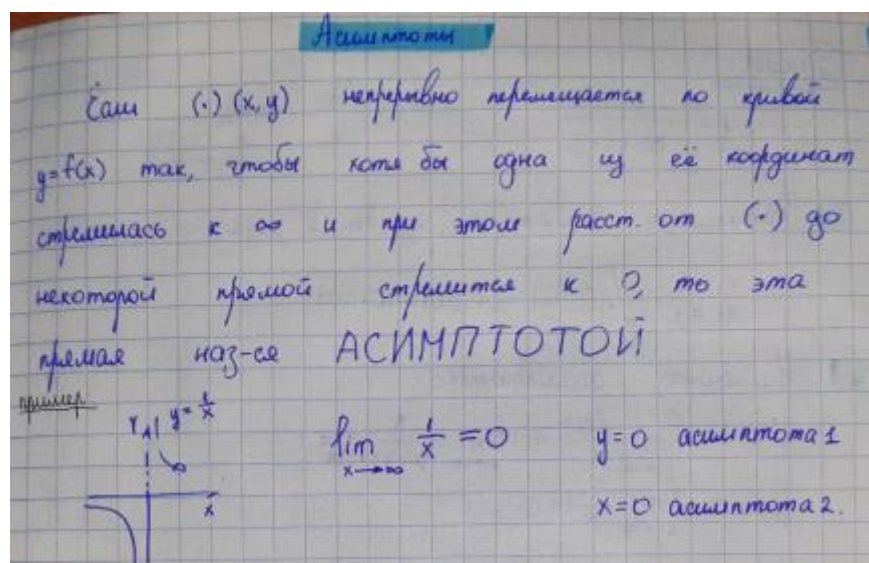 Асимптоты
Если (·) (x, y) непрерывно перемещается по кривой
y=f(x) так, чтобы хотя бы одна из её координат
стремилась к ∞ и при этом расст. от (·) до
некоторой прямой стремится к 0, то эта
прямая наз-ся АСИМПТОТОЙ
пример
Y y = 1/x
lim x→∞ 1/x = 0 y=0 асимптота 1
x
x=0 асимптота 2.